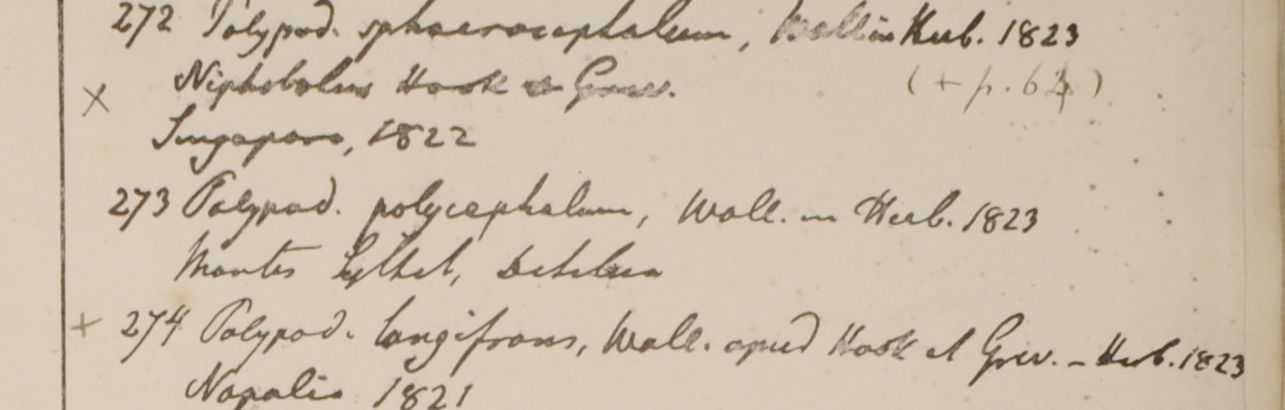 272 Polypod. sphaerocephalum, Wall in Herb. 1823
× Niphobolus Hook et Grev. (+ p. 64)
Singapore, 1822
273 Polypod. polycephalum, Wall. in Herb. 1823
Montes Sylhet,
+ 274 Polypod. longifrons, Wall. apud Hook et Grev. - Herb. 1823
Napalia 1821